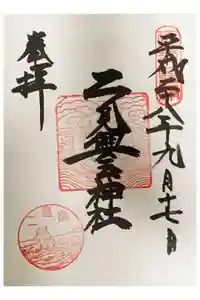 平成二十八年九月十七日
二見興玉神社
奉拝